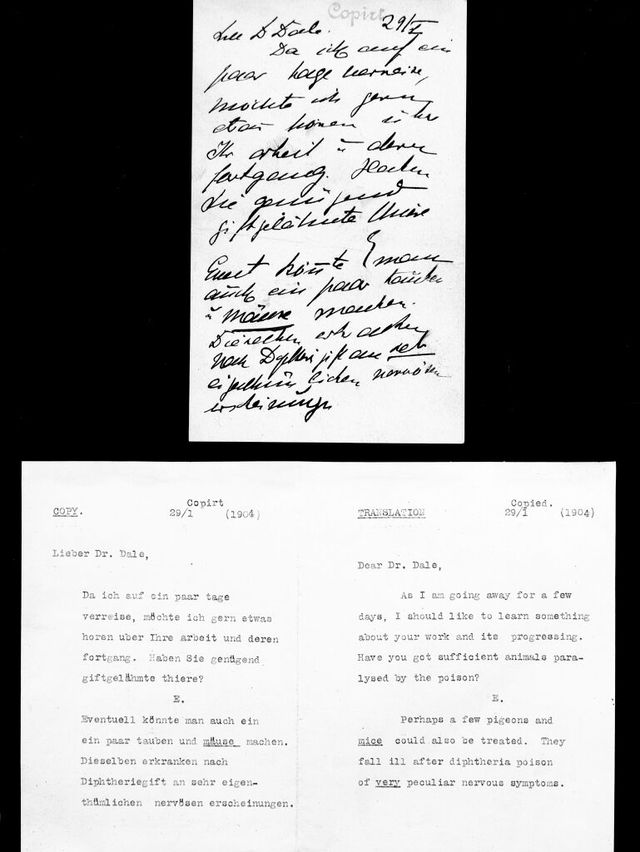 Copirt
29/I
Lieb Dr Dale.
Da ich auf ein
paar tage verreise,
möchte ich gern
etwas hören über
Ihr arbeit u deren
fortgang. Haben
Sie genügend
giftgelähmte thiere
E
Event könnte man
auch ein paar tauben
u mäuse machen.
Dieselben erkranken
nach Diphtheriegift an sehr
eigenthümlichen nervösen
erscheinungen
COPY.
Copirt
29/1 (1904)
Lieber Dr. Dale,
Da ich auf ein paar tage
verreise, möchte ich gern etwas
horen uber Ihre arbeit und deren
fortgang. Haben Sie genügend
giftgelähmte thiere?
E.
Eventuell könnte man auch ein
ein paar tauben und mäuse machen.
Dieselben erkranken nach
Diphtheriegift an sehr eigen-
thümlichen nervösen erscheinungen.
TRANSLATION
Copied.
29/1 (1904)
Dear Dr. Dale,
As I am going away for a few
days, I should like to learn something
about your work and its progressing.
Have you got sufficient animals para-
lysed by the poison?
E.
Perhaps a few pigeons and
mice could also be treated. They
fall ill after diphtheria poison
of very peculiar nervous symptoms.